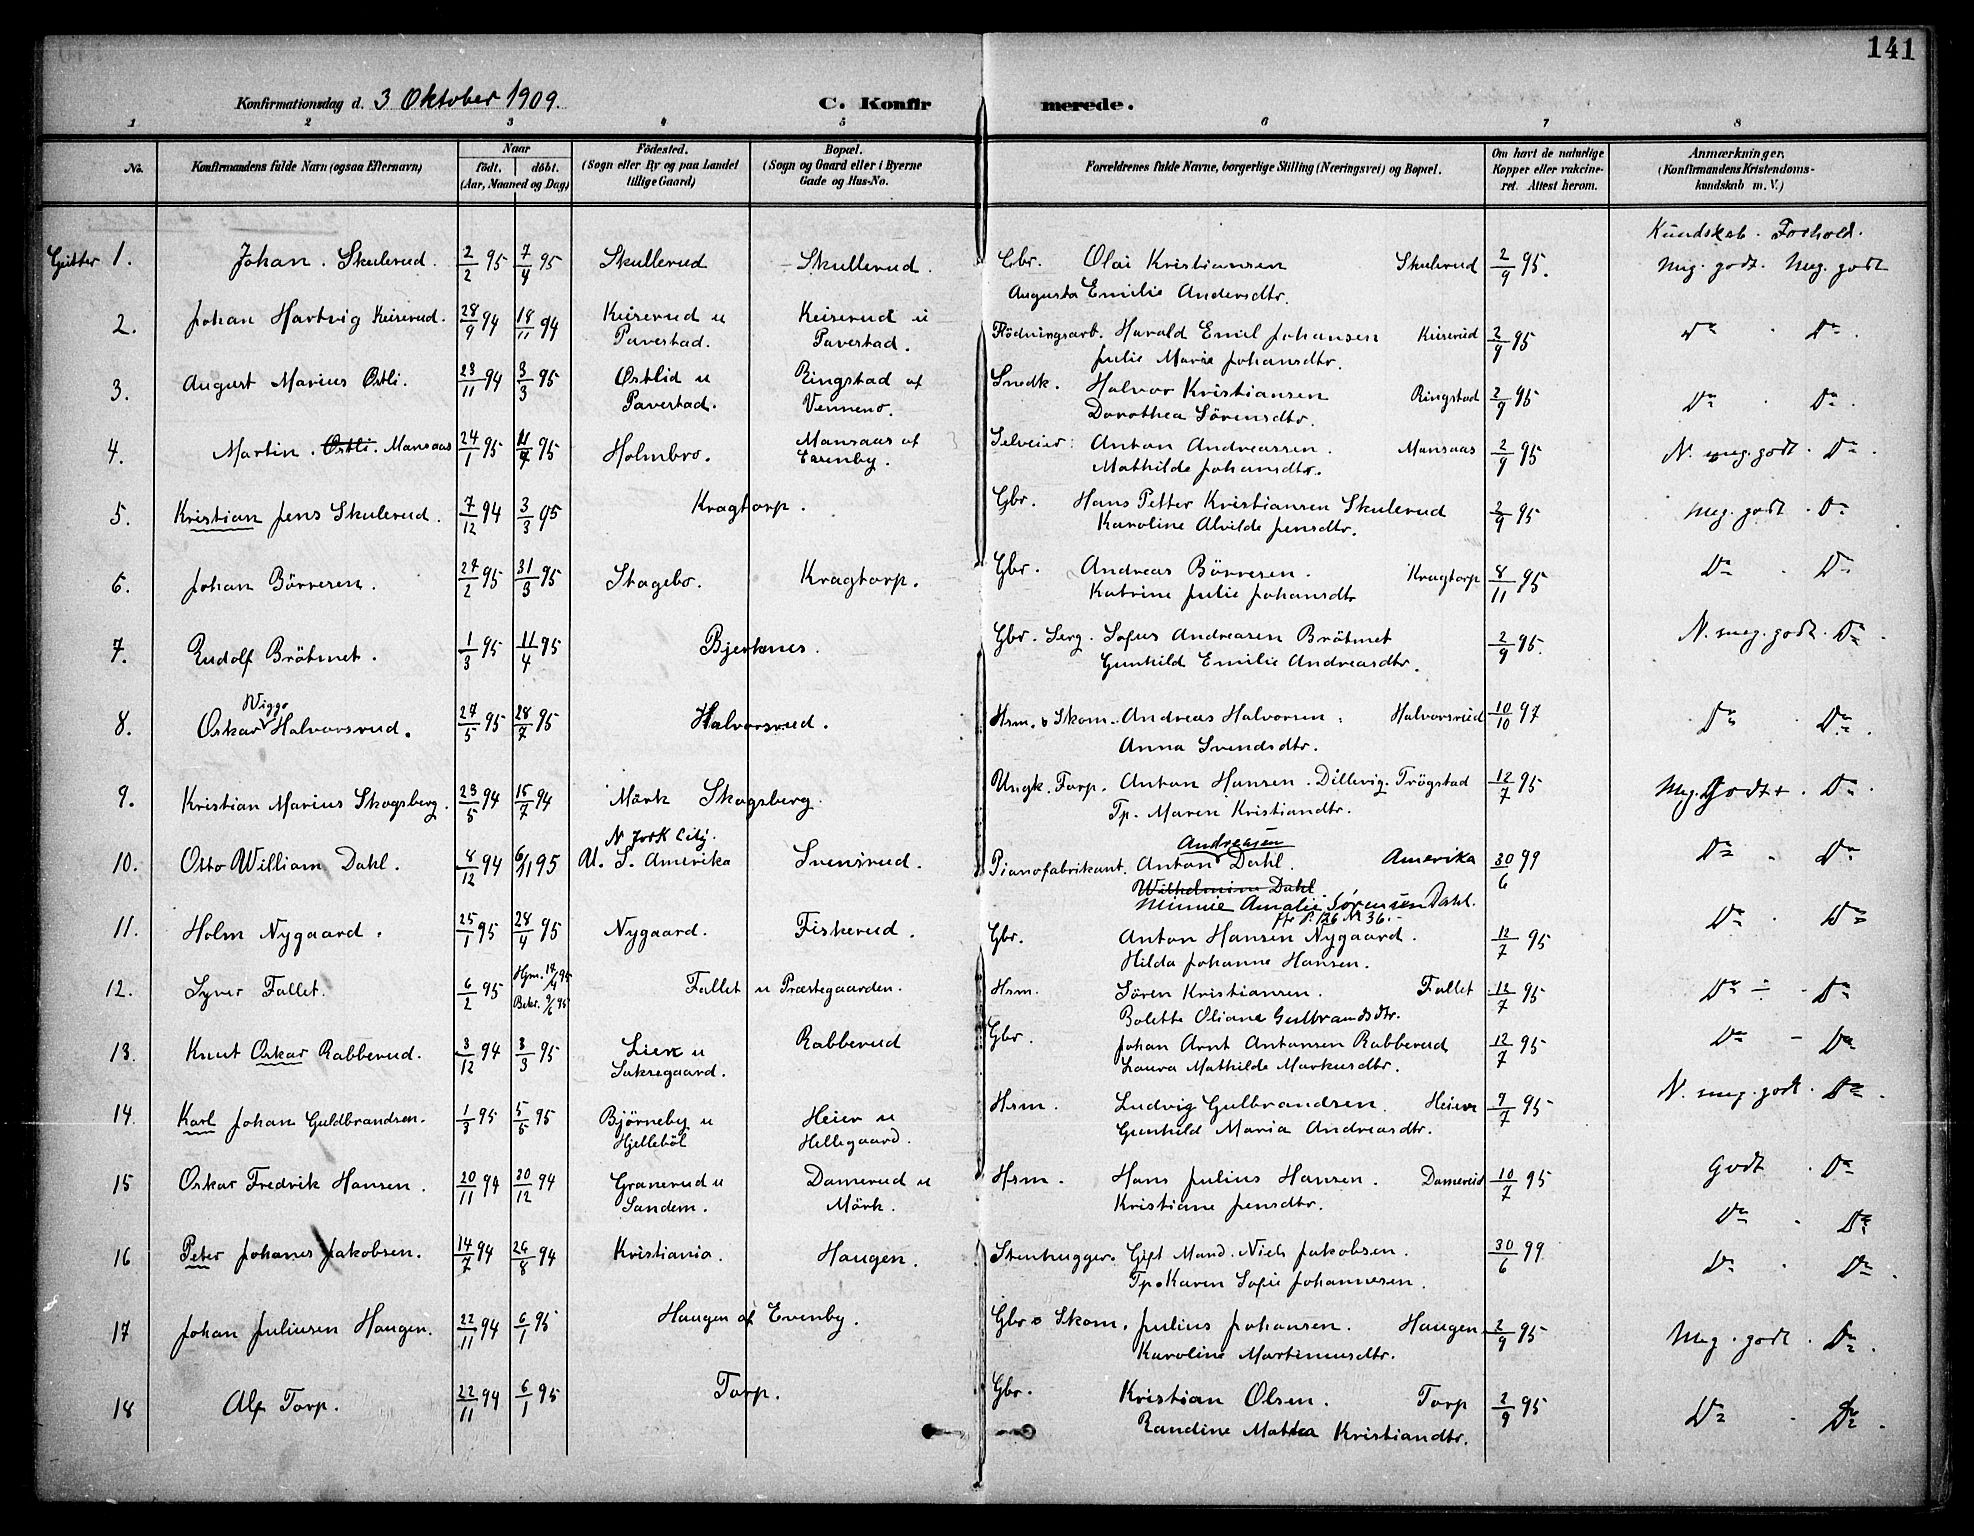 141
Konfirmationsdag d. 3 Oktober 1909. C. Konfirmerede.
1 2 3 4 5 6 7 8
No. Konfirmandens fulde Navn (ogsaa Efternavn) Naar født, døbt. (Aar, Maaned og Dag) Fødested. (Sogn eller By og paa Landet tillige Gaard) Bopæl. (Sogn og Gaard eller i Byerne Gade og Hus-No. Forældrenes fulde Navne, borgerlige Stilling (Næringsvei) og Bopæl. Om havt de naturlige Kopper eller vakcineret. Attest herom. Anmærkninger. (Konfirmandens Kristendomskundskab m. V.)
Kundskab. Forhold.
Gutter 1. Johan Skulerud. 2/2 95 7/4 95 Skullerud Skullerud. Gbr. Olai Kristiansen Skulerud 2/9 95. Meg. godt. Meg. godt
Augusta Emilie Andersdtr.
2. Johan Hartvig Keiserud. 28/9 94 18/11 94 Keiserud u Pavestad. Keiserud u Pavestad. Flödningsarb. Harald Emil Johansen Keiserud 2/9 95 Do Do.
Julie Marie Johansdtr.
3. August Marius Østli. 23/11 94 3/3 95 Østlid u Pavestad. Ringstad af Vennero. Snedk. Halvor Kristiansen Ringstad 2/9 95 Do Do.
Dorothea Sörensdtr.
4. Martin. Østli. Mansaas 24/1 95 95 Holmbro. Mansaas af Evenby. Selveier: Anton Andreassen. Mansaas 2/9 95 N. meg. godt. Do.
Mathilde Johansdtr.
5. Kristian Jens Skulerud. 7/12 94 3/3 95 Kragtorp. Gbr. Hans Petter Kristiansen Skulerud 2/9 95 Meg. godt. Do
Karoline Alvilde Jensdtr.
6. Johan Börresen. 27/2 95 31/3 95 Stagebo. Kragtorp. Gbr. Andreas Börresen. Kragtorp 8/11 95 Do Do
Katrine Julie Johansdtr
7. Rudolf Bråtmet. 1/3 95 11/4 95 Bjerknes. Gbr. Serg. Sofus Andreasen Bråtmet 2/9 95. N. meg. godt. Do.
Gunhild Emilie Andreasdtr.
8. Oskar Wiggo Halvorsrud. 27/5 95 28/7 95 Halvorsrud. Hrm. o Skom. Andreas Halvorsen. Halvorsrud 10/10 97 Do Do.
Anna Svendsdtr.
9. Kristian Marius Skogsberg. 23/5 94 15/7 94 Mörk Skogsberg. Ungk. Forp. Anton Hansen. Dillevig. Trögstad 12/7 95 Meg. Godt+. Do.
Tp. Maren Kristiandtr.
10. Otto William Dahl. 8/12 94 6/1 95 N. York City. Al. S. Amerika Svensrud. Pianofabrikant. Anton Andreasen Dahl. Amerika 30/6 99 Do Do
Wilhelmine Dahl
Minnie Amalie Sørensen Dahl.
11. Holm Nygaard. 25/1 95 28/4 95 Nygaard. Fiskerud. Gbr. Anton Hansen Nygaard. 12/7 95 Do Do
Hilda Johanne Hansen.
12. Syver Fallet. 6/2 95 Hjm. 17/4 95 Bekr. 9/6 95 Fallet u Præstegaarden. Hrm. Sören Kristiansen. Fallet 12/7 95 Do ÷ - Do
Bolette Oliane Gulbrandsdtr.
13. Knut Oskar Rabberud. 3/12 94 3/3 95 Lier u Saksegaard. Rabberud Gbr. Johan Arnt Antonsen Rabberud 12/7 95 Do - Do
Laura Mathilde Markusdtr.
14. Karl Johan Guldbrandsen. 1/3 95 5/5 95 Bjørneby u Hjelleböl Heier u Hellegaard. Hrm. Ludvig Gulbrandsen. Heier 7/7 95 N. meg. godt. Do.
Gunhild Maria Andreasdtr.
15 Oskar Fredrik Hansen. 20/11 94 30/12 94 Granerud u Sandem. Damerud u Mörk. Hrm. Hans Julius Hansen. Damerud 10/7 95 Godt. Do
Kristiane Jensdtr. Do Do
16 Peter Johanes Jakobsen. 14/7 94 26/8 94 Kristiania. Haugen. Stenhugger. Gift Mand. Niels Jakobsen. 30/6 99 Do Do.
Tp. Karen Sofie Johannesen.
17 Johan Juliusen Haugen. 22/11 94 6/1 95 Haugen af Evenby. Gbr o Skom. Julius Johansen. Haugen 2/9 95 Meg. godt. Do.
Karoline Martinusdtr.
18 Alf Torp. 22/11 94 6/1 95 Torp. Gbr. Kristian Olsen. Torp 2/9 95 Do Do.
Randine Mathea Kristiandtr.